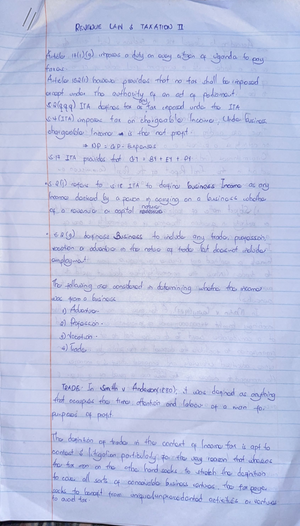 REVENUE LAW & TAXATION II
Article 17(1)(g) imposes a duty on every citizen of Uganda to pay
taxes.
Article 152(1) however provides that no tax shall be imposed
except under the authority of an act of parliament.
S.2(qqq) ITA defines tax as any tax imposed under the ITA
S.4(ITA) imposes tax on chargeable Income. Under business
chargeable Income is the net profit
S.17 ITA provides that
S.2(l) refers to S.18 ITA to define business Income as any
Income derived by a person in carrying on a business whether
of a revenue or capital nature
S.2(g) defines Business to include any trade, profession
vocation or adventure in the nature of trade but does not include
employment
The following are considered in determining whether the income
was from a business
1) Adventure
2) Profession
3) Vocation
4) Trade
TRADE: In Smith v Anderson(1880); it was defined as anything
that occupies the time attention and labour of a man for
purposes of profit.
The definition of trade in the context of Income tax is apt to
contest & litigation particularly for the very reason that whereas
the tax man on the other hand seeks to stretch the definition
to cover all sorts of conceivable business ventures, the tax payer
seeks to benefit from
to avoid tax